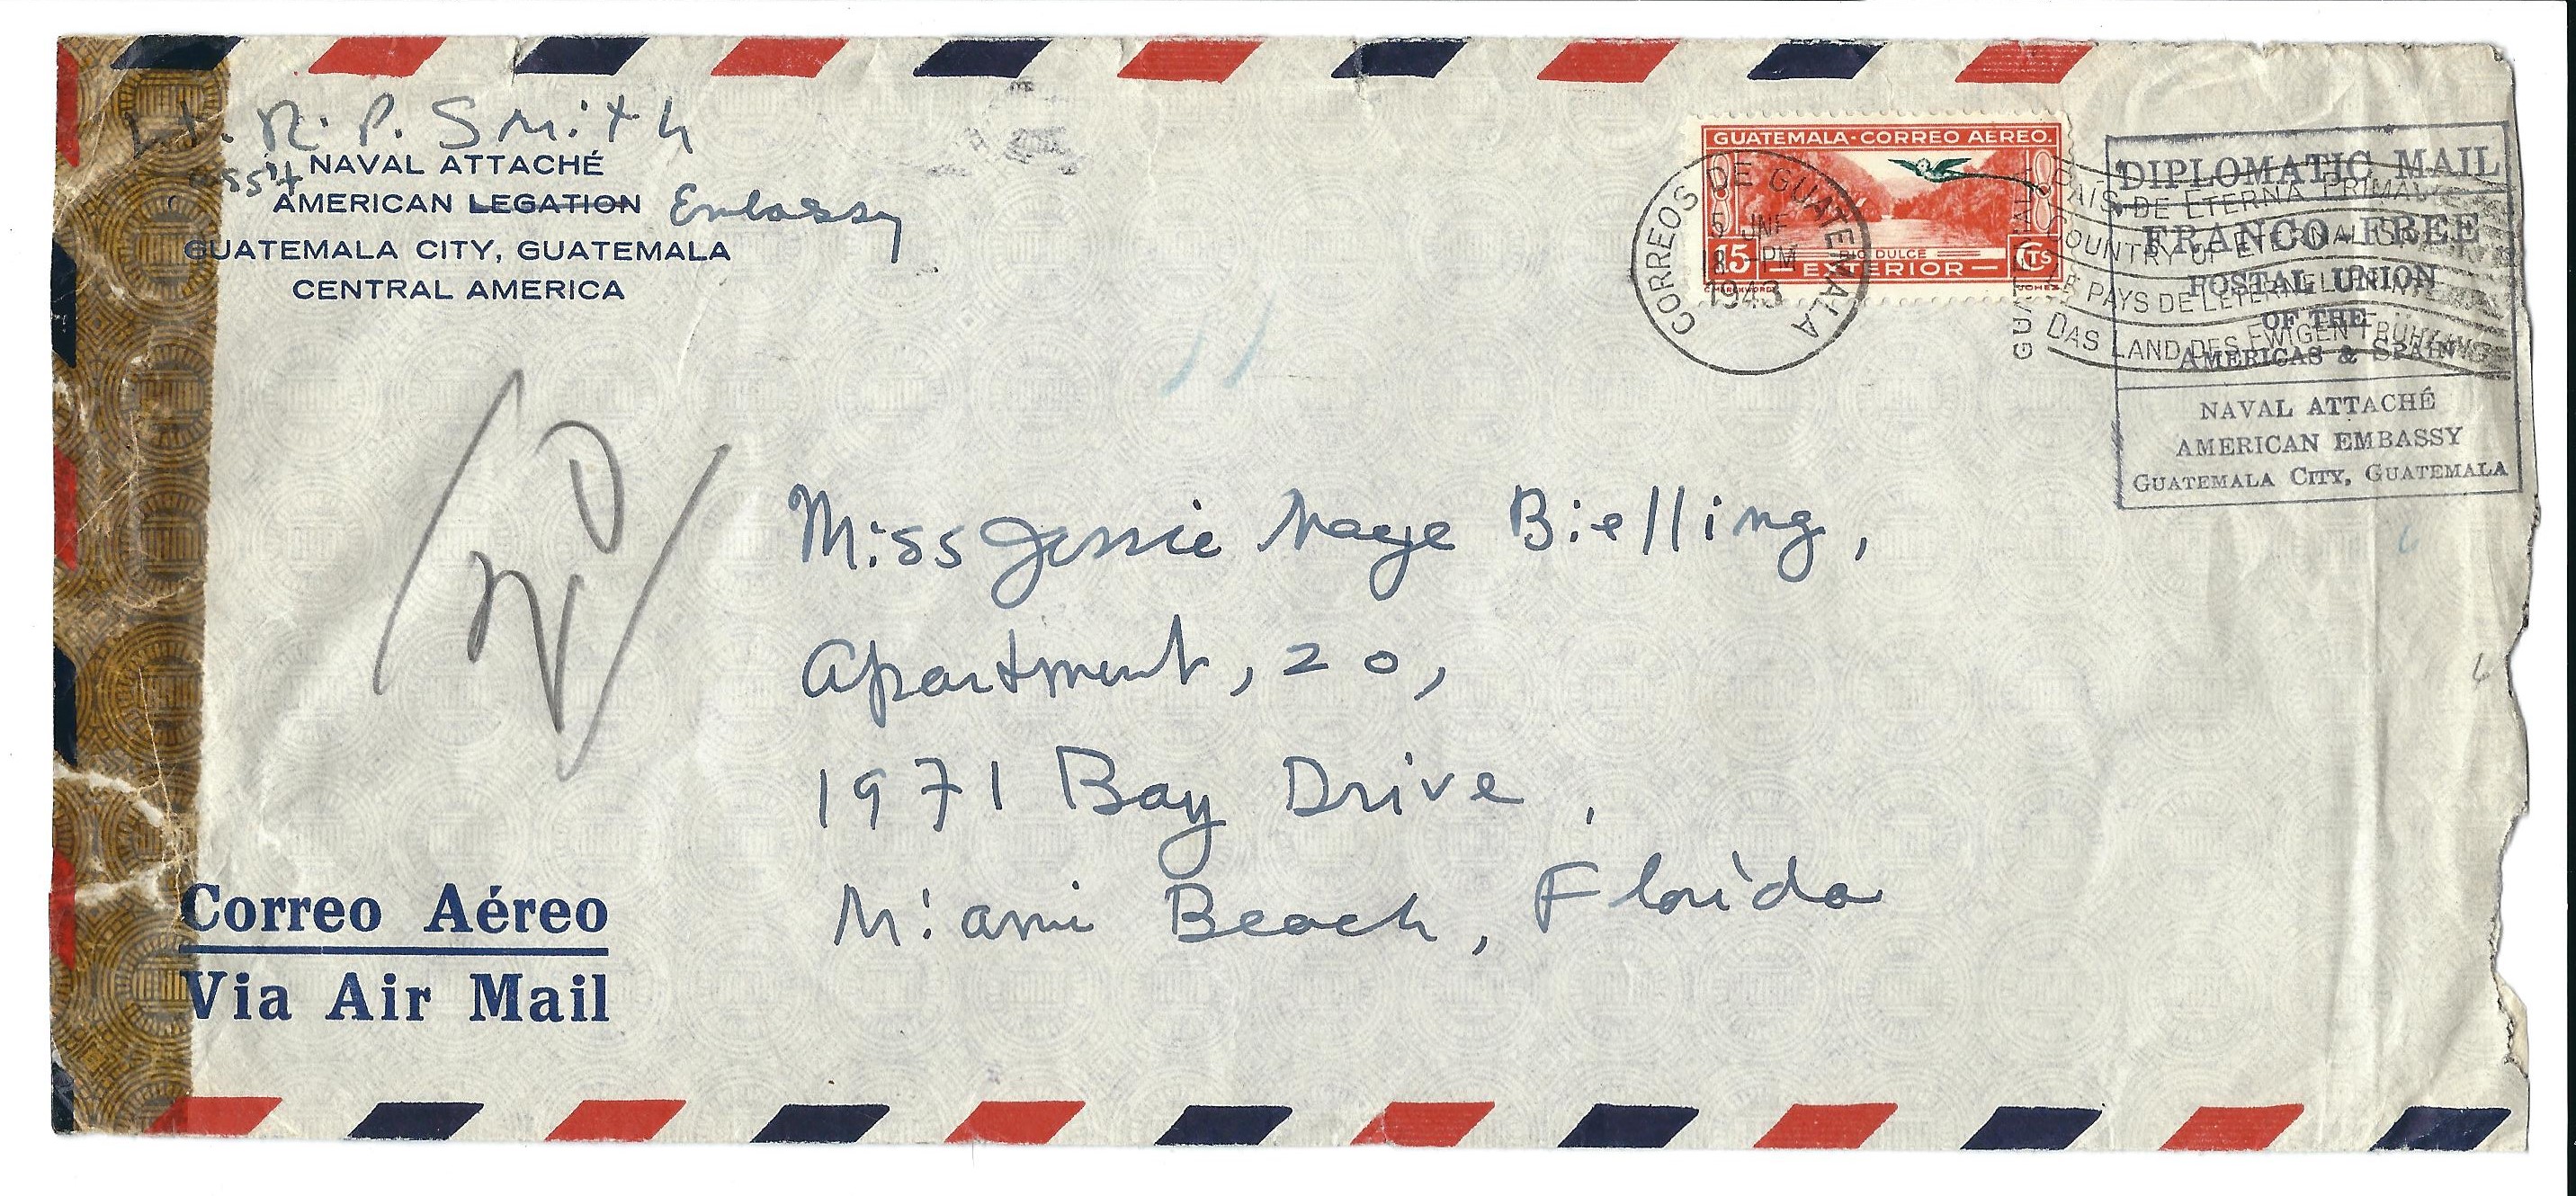 Lt. R. P. Smith
Ass't NAVAL ATTACHÉ
AMERICAN LEGATION Embassy
GUATEMALA CITY, GUATEMALA
CENTRAL AMERICA
GUATEMALA-CORREO AEREO.
15 RIO DULCE CTS
EXTERIOR
CORREOS DE GUATEMALA
5 JNE
8-PM
1943
PAIS DE ETERNA PRIMAVERA
COUNTRY OF ETERNAL
PAYS DE L'ETERNEL
DAS LAND DES EWIGEN FRÜHLINGS
DIPLOMATIC MAIL
FRANCO-FREE
POSTAL UNION
OF THE
AMERICAS & SPAIN
NAVAL ATTACHÉ
AMERICAN EMBASSY
GUATEMALA CITY, GUATEMALA
Miss Jessie Maye Bielling,
Apartment, 20,
1971 Bay Drive,
Miami Beach, Florida
Correo Aéreo
Via Air Mail